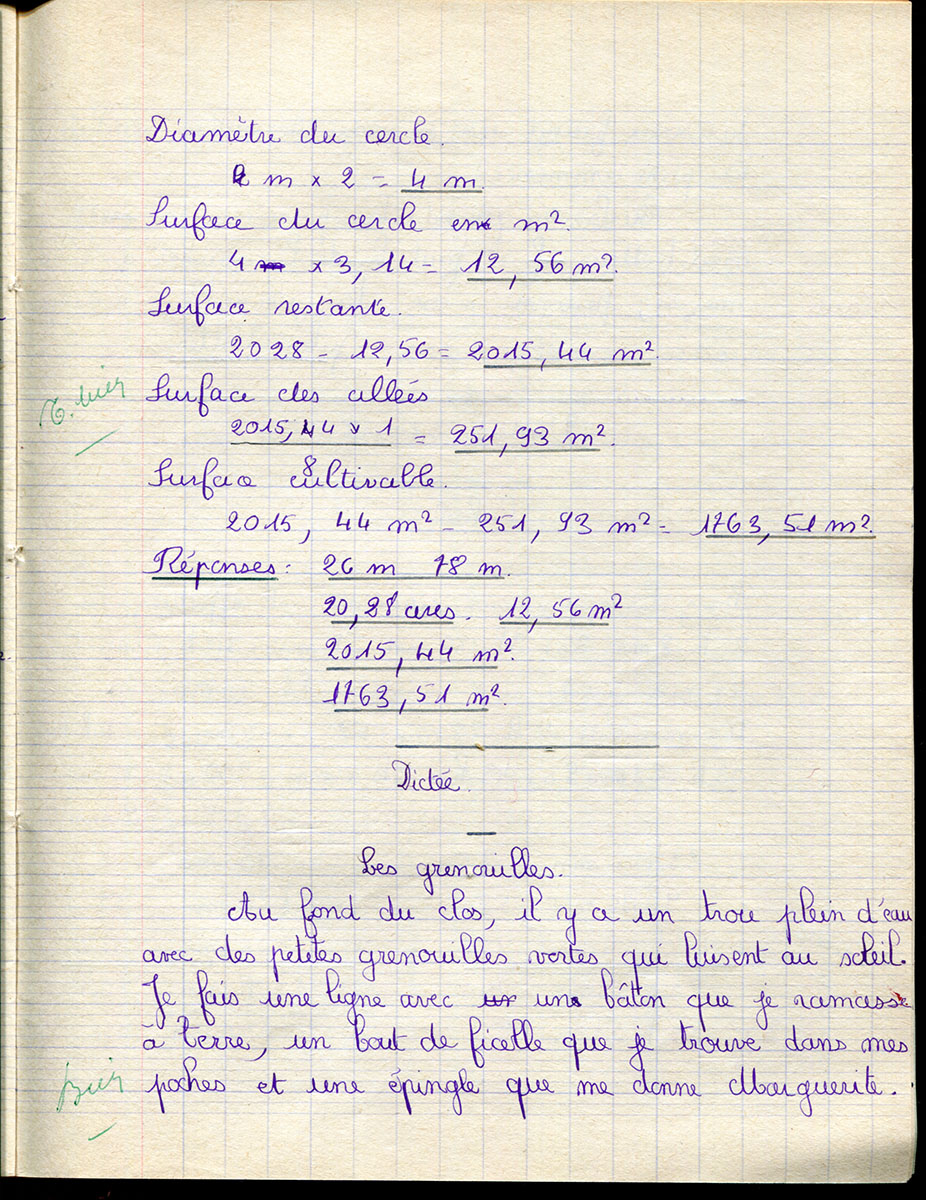 Diamètre du cercle.
2 m × 2 = 4 m.
Surface du cercle en m².
4 × 3,14 = 12,56 m².
Surface restante.
2028 - 12,56 = 2015,44 m².
T. bien
Surface des allées
2015,44 × 1 = 251,93 m².
8
Surface cultivable.
2015,44 m² - 251,93 m² = 1763,51 m².
Réponses : 26 m 78 m.
20,28 ares. 12,56 m²
2015,44 m².
1763,51 m².
Dictée.
Les grenouilles.
Au fond du clos, il y a un trou plein d'eau
avec des petites grenouilles vertes qui luisent au soleil.
Je fais une ligne avec un bâton que je ramasse
à terre, un bout de ficelle que je trouve dans mes
poches et une épingle que me donne Marguerite.
bien